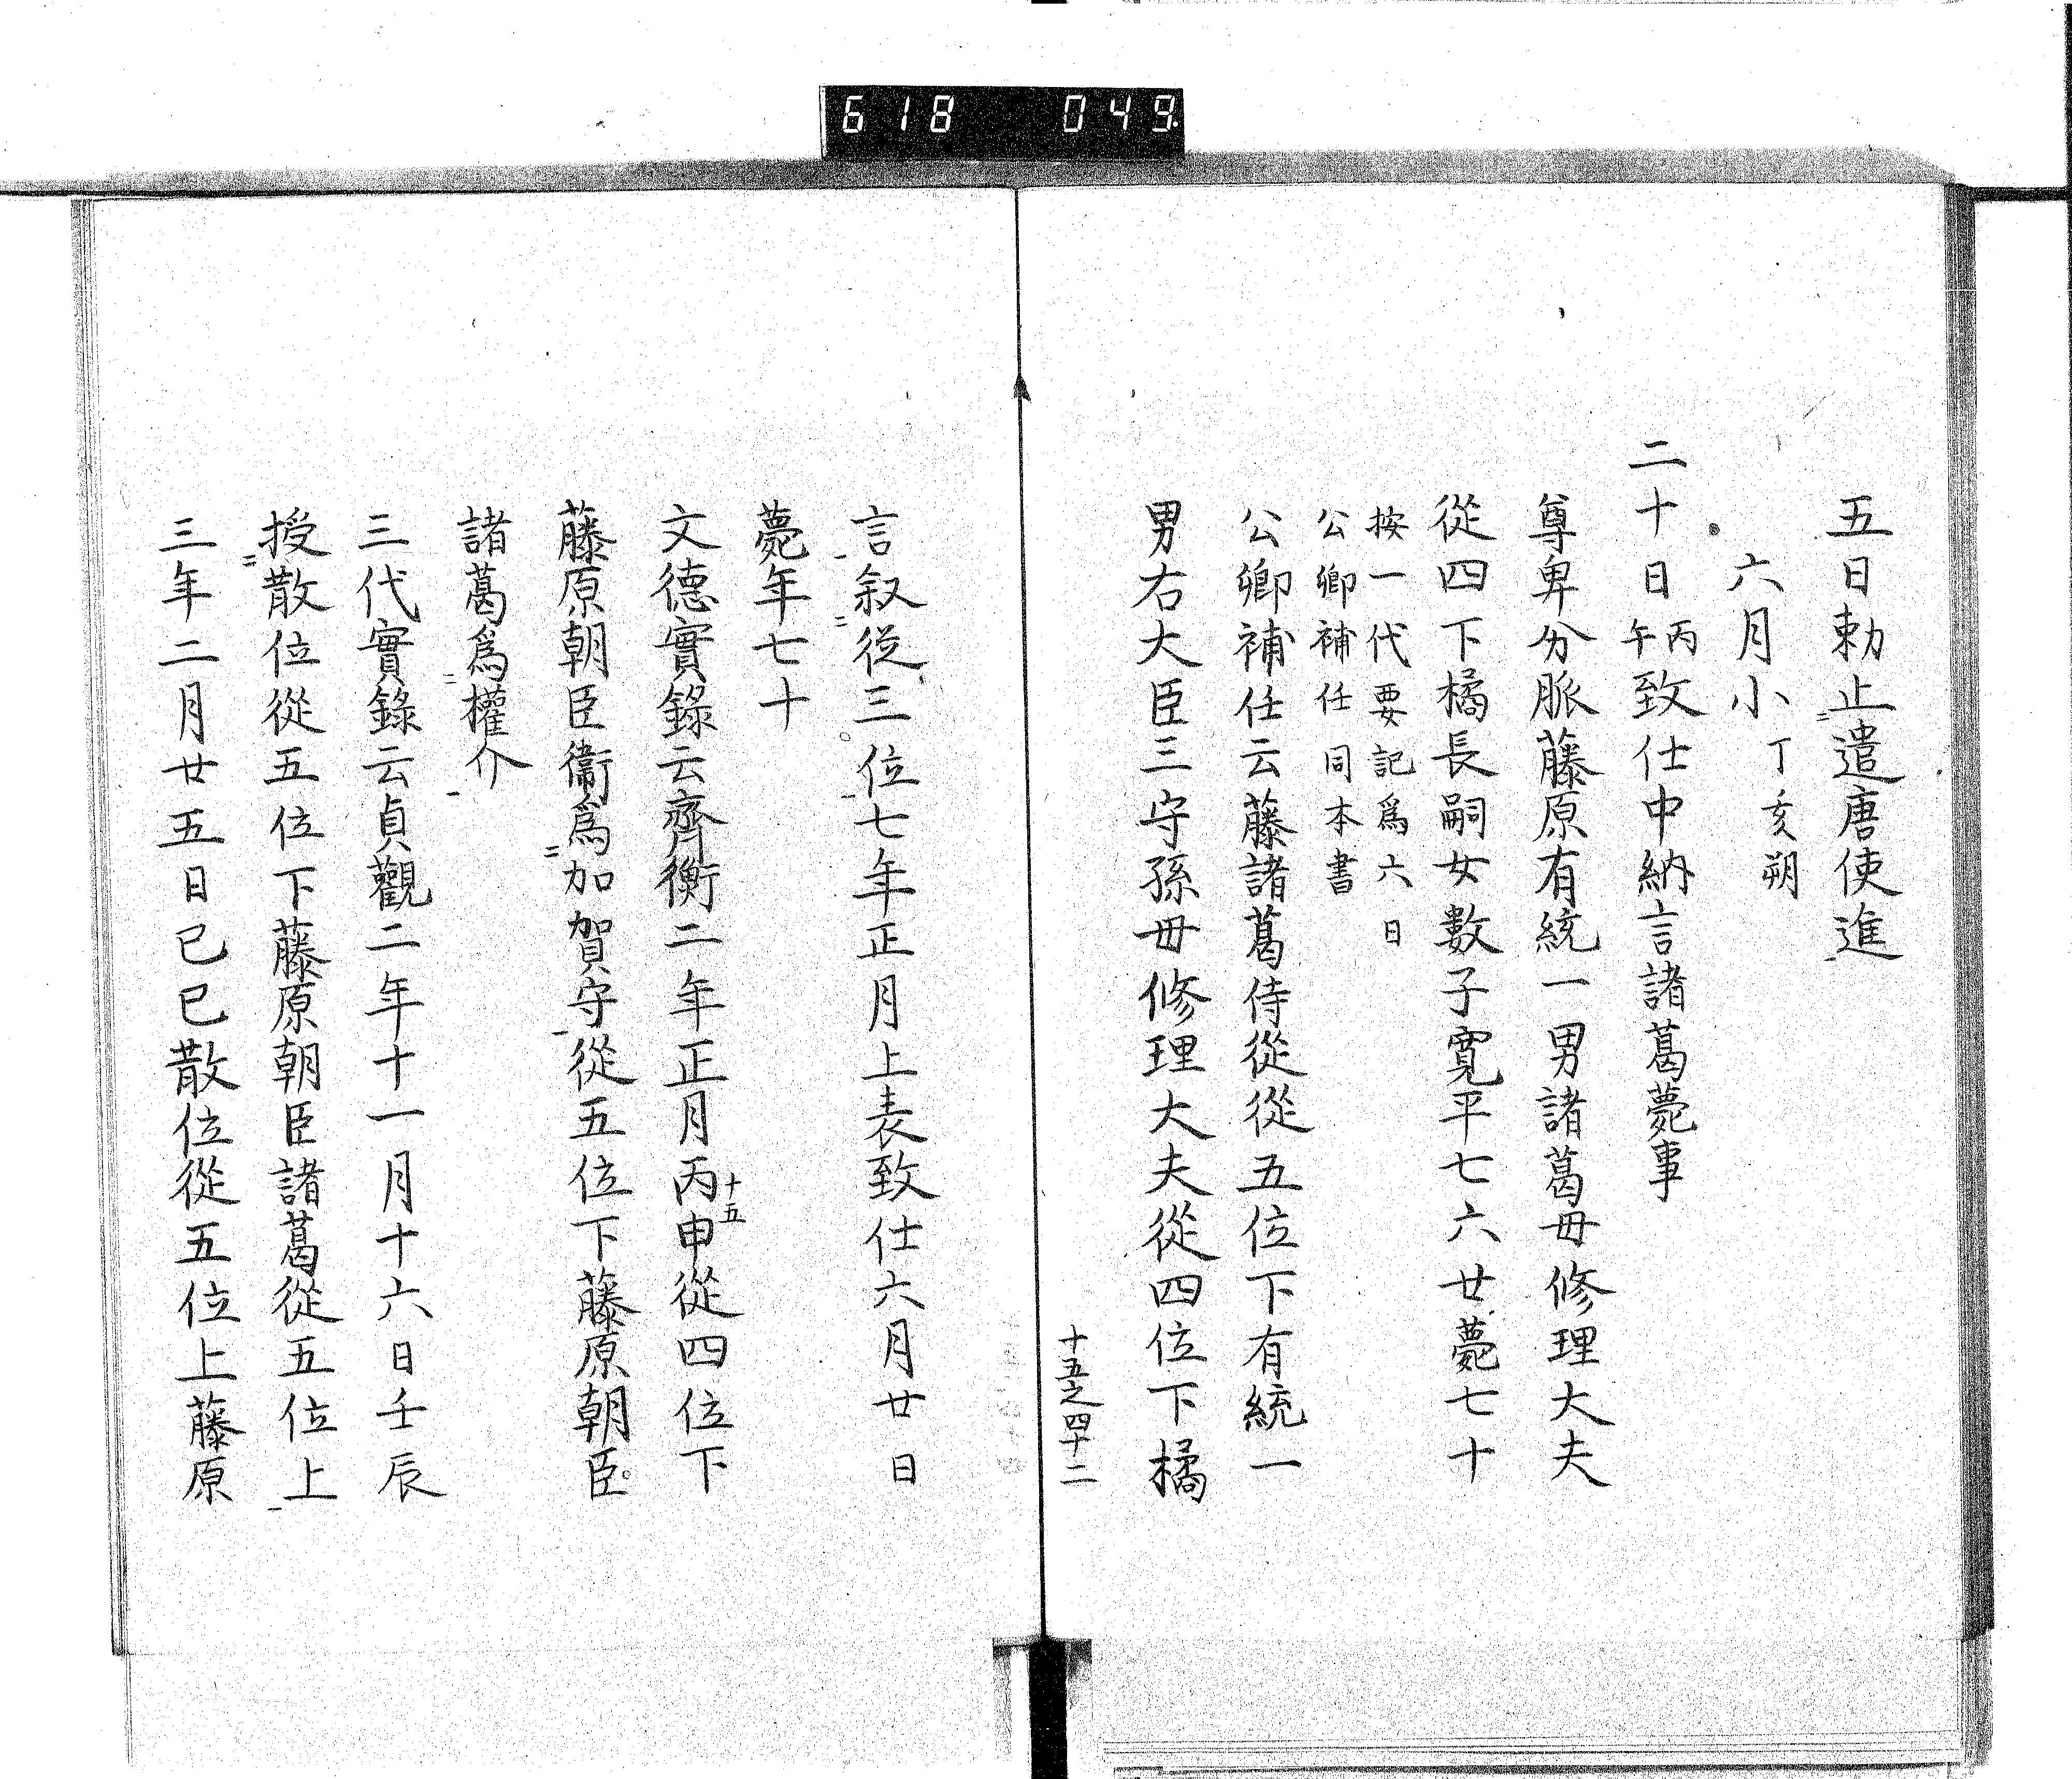 618 049
五日勅止遣唐使進
六月小丁亥朔
二十日丙午致仕中納言諸葛薨事
尊卑分脈藤原有統一男諸葛毋修理大夫
從四下橘長嗣女數子寛平七六廿薨七十
按一代要記爲六日
公卿補任同本書
公卿補任云藤諸葛侍從從五位下有統一
男右大臣三守孫毋修理大夫從四位下橘
十五之四十二
言叙從三位七年正月上表致仕六月廿日
薨年七十
文德實錄云齊衡二年正月丙申十五從四位下
藤原朝臣衞爲加賀守從五位下藤原朝臣
諸葛爲權介
三代實錄云貞觀二年十一月十六日壬辰
授散位從五位下藤原朝臣諸葛從五位上
三年二月廿五日己巳散位從五位上藤原